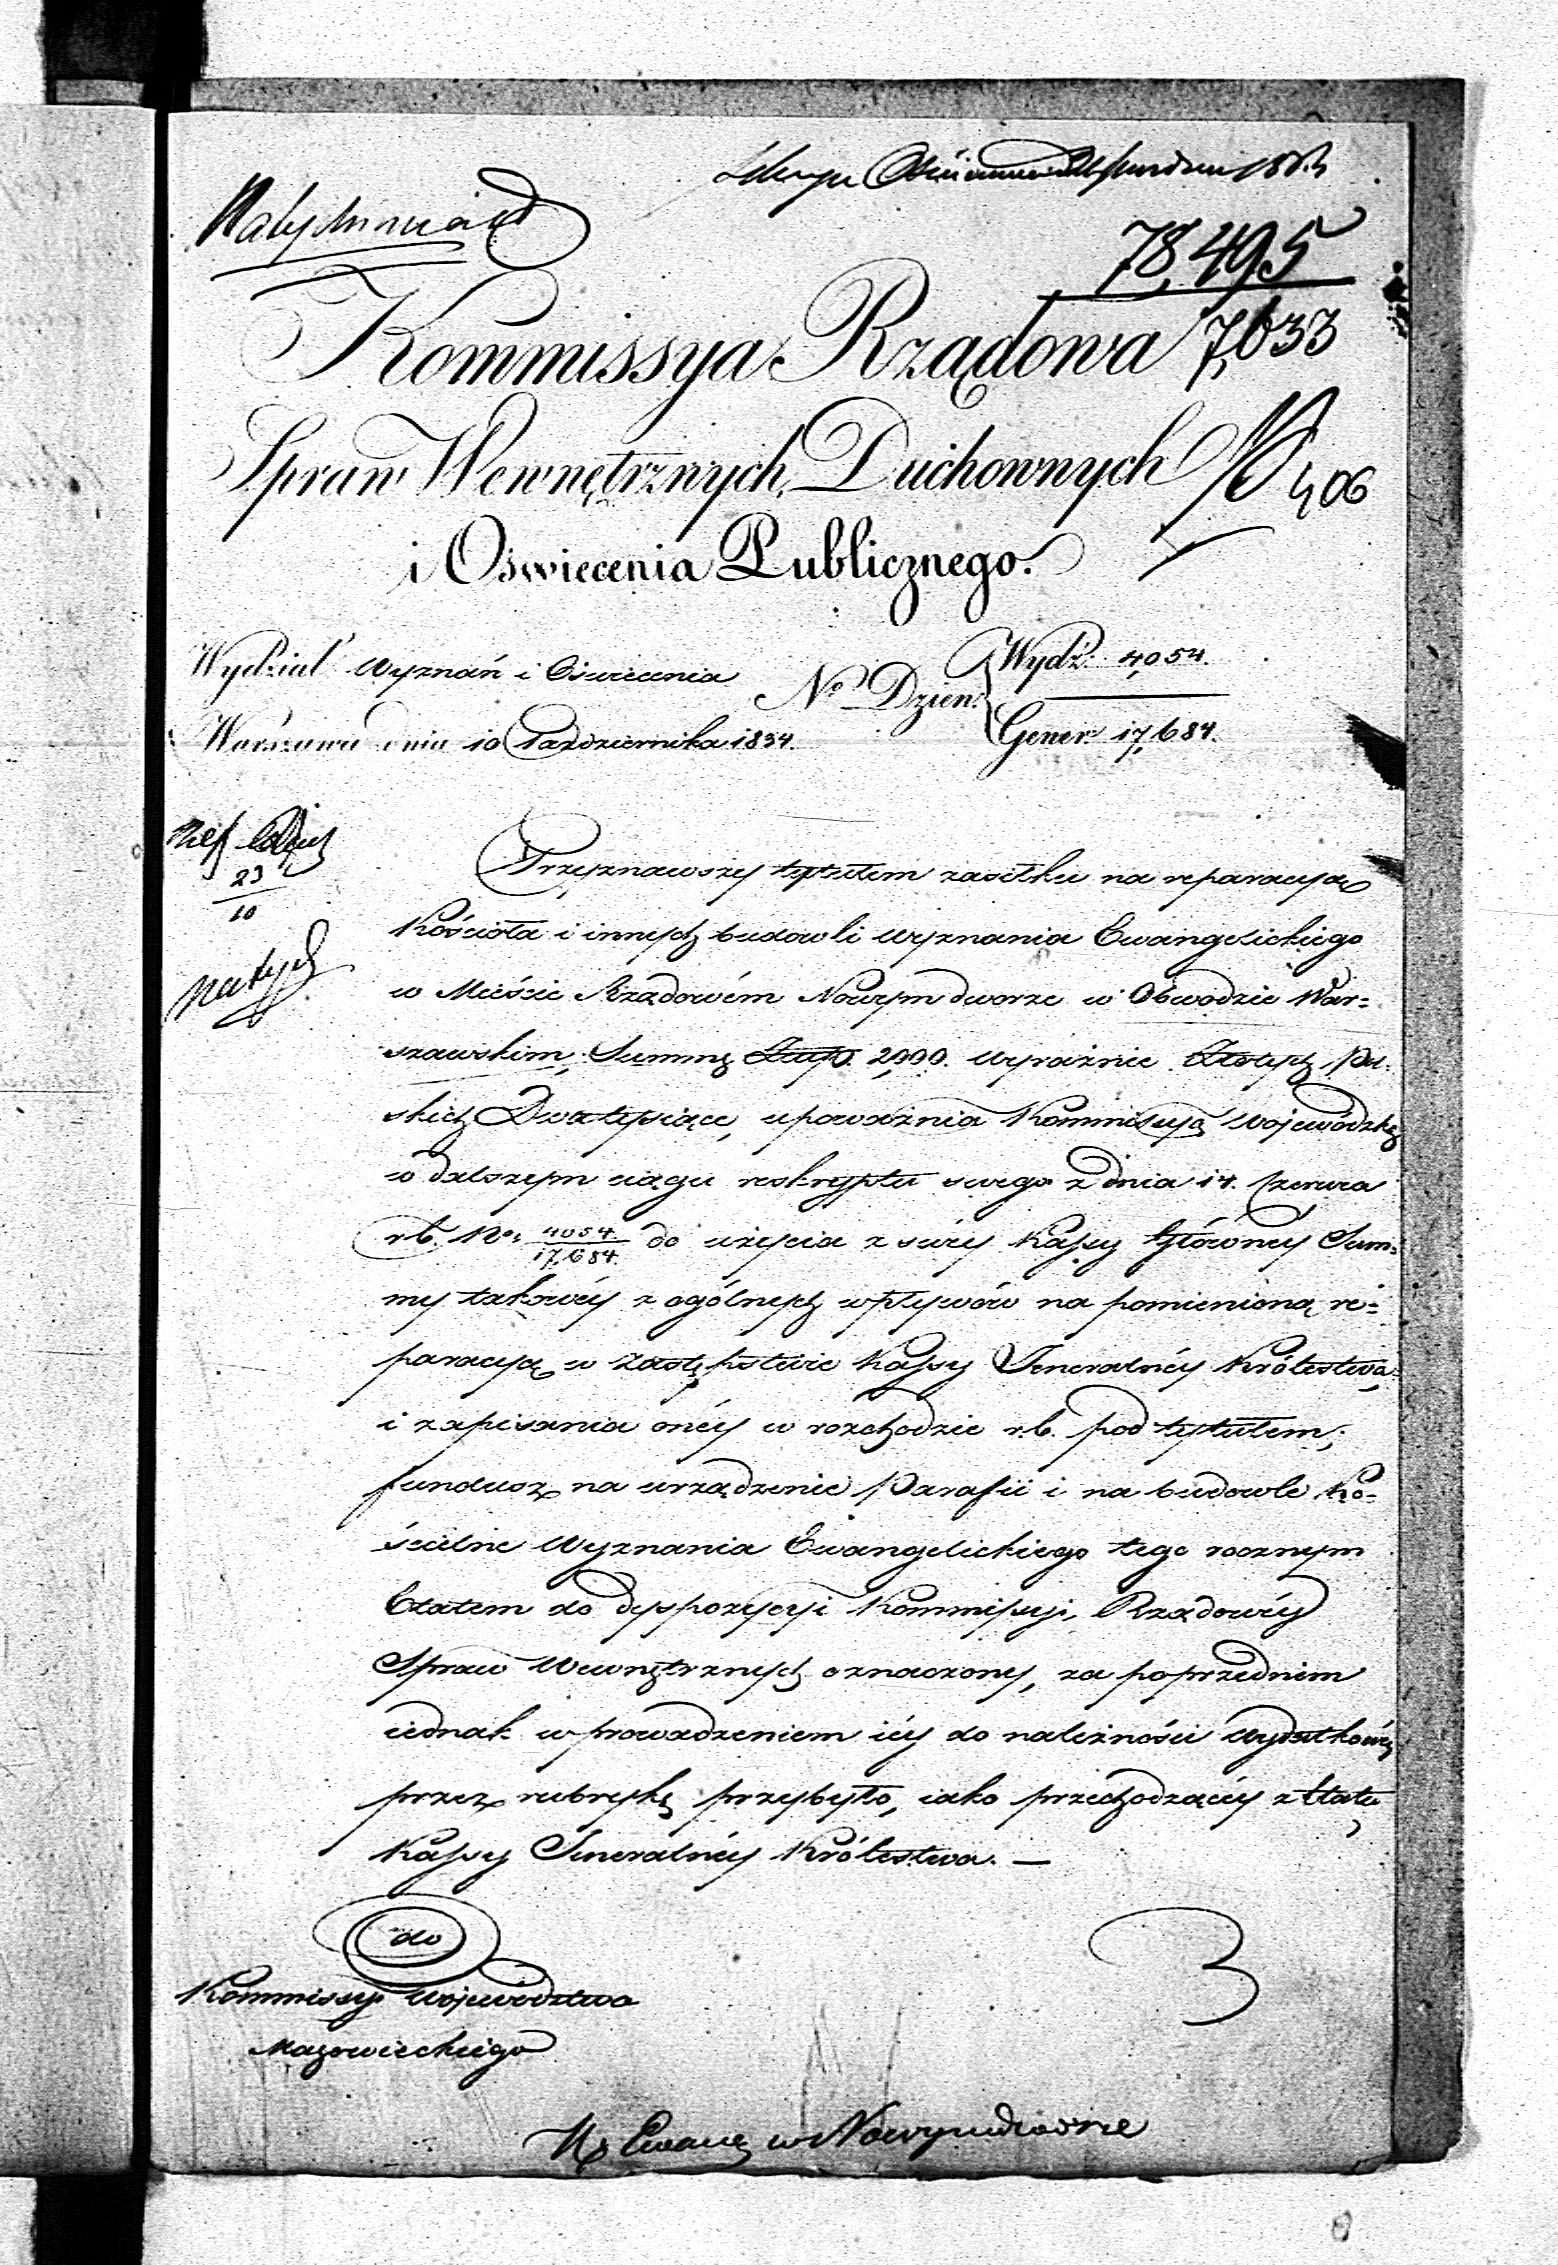 Natychmiast
78,495
7,633
Kommissya Rządowa
Spraw Wewnętrznych, Duchownych
406
i Oświecenia Publicznego.
Wydział Wyznań i Oświecenia
No Dzien: Wydz: 4,054.
Warszawa dnia 10 Października 1834.
Gener: 17,684.
23
10
natych
Przyznawszy tytułem zasiłku na reparacyą
Kościoła i innych budowli wyznania Ewangelickiego
w Mieście Rządowém Nowymdworze w Obwodzie War=
szawskim, Summę Złłp. 2,000. wyraźnie Złotych Pol=
skich Dwatysiące, upoważnia Kommissyą Wojewódzką
w dalszym ciągu reskryptu swego z dnia 14. Czerwca
r.b. No: 4054/17,684. do użycia z swéy Kassy Główney Sum=
my takowéy z ogólnych wpływów na pomienioną re=
paracyą w zastępstwie Kassy Jeneralnéy Królestwa,
i zapisania onéy w rozchodzie r.b. pod tytułem;
fundusz na urządzenie Parafii i na budowle Ko=
ścielne Wyznania Ewangelickiego tego rocznym
Etatem do dyspozycyi Kommissyi Rządowéy
Spraw Wewnętrznych oznaczony, za poprzedniem
iednak wprowadzeniem iéy do należności wydatkowéy
przez rubrykę przybyło, iako przechodzącéy z Etatu
Kassy Jeneralnéy Królestwa. —
do
Kommissyi Województwa
Mazowieckiego
w Nowymdworze